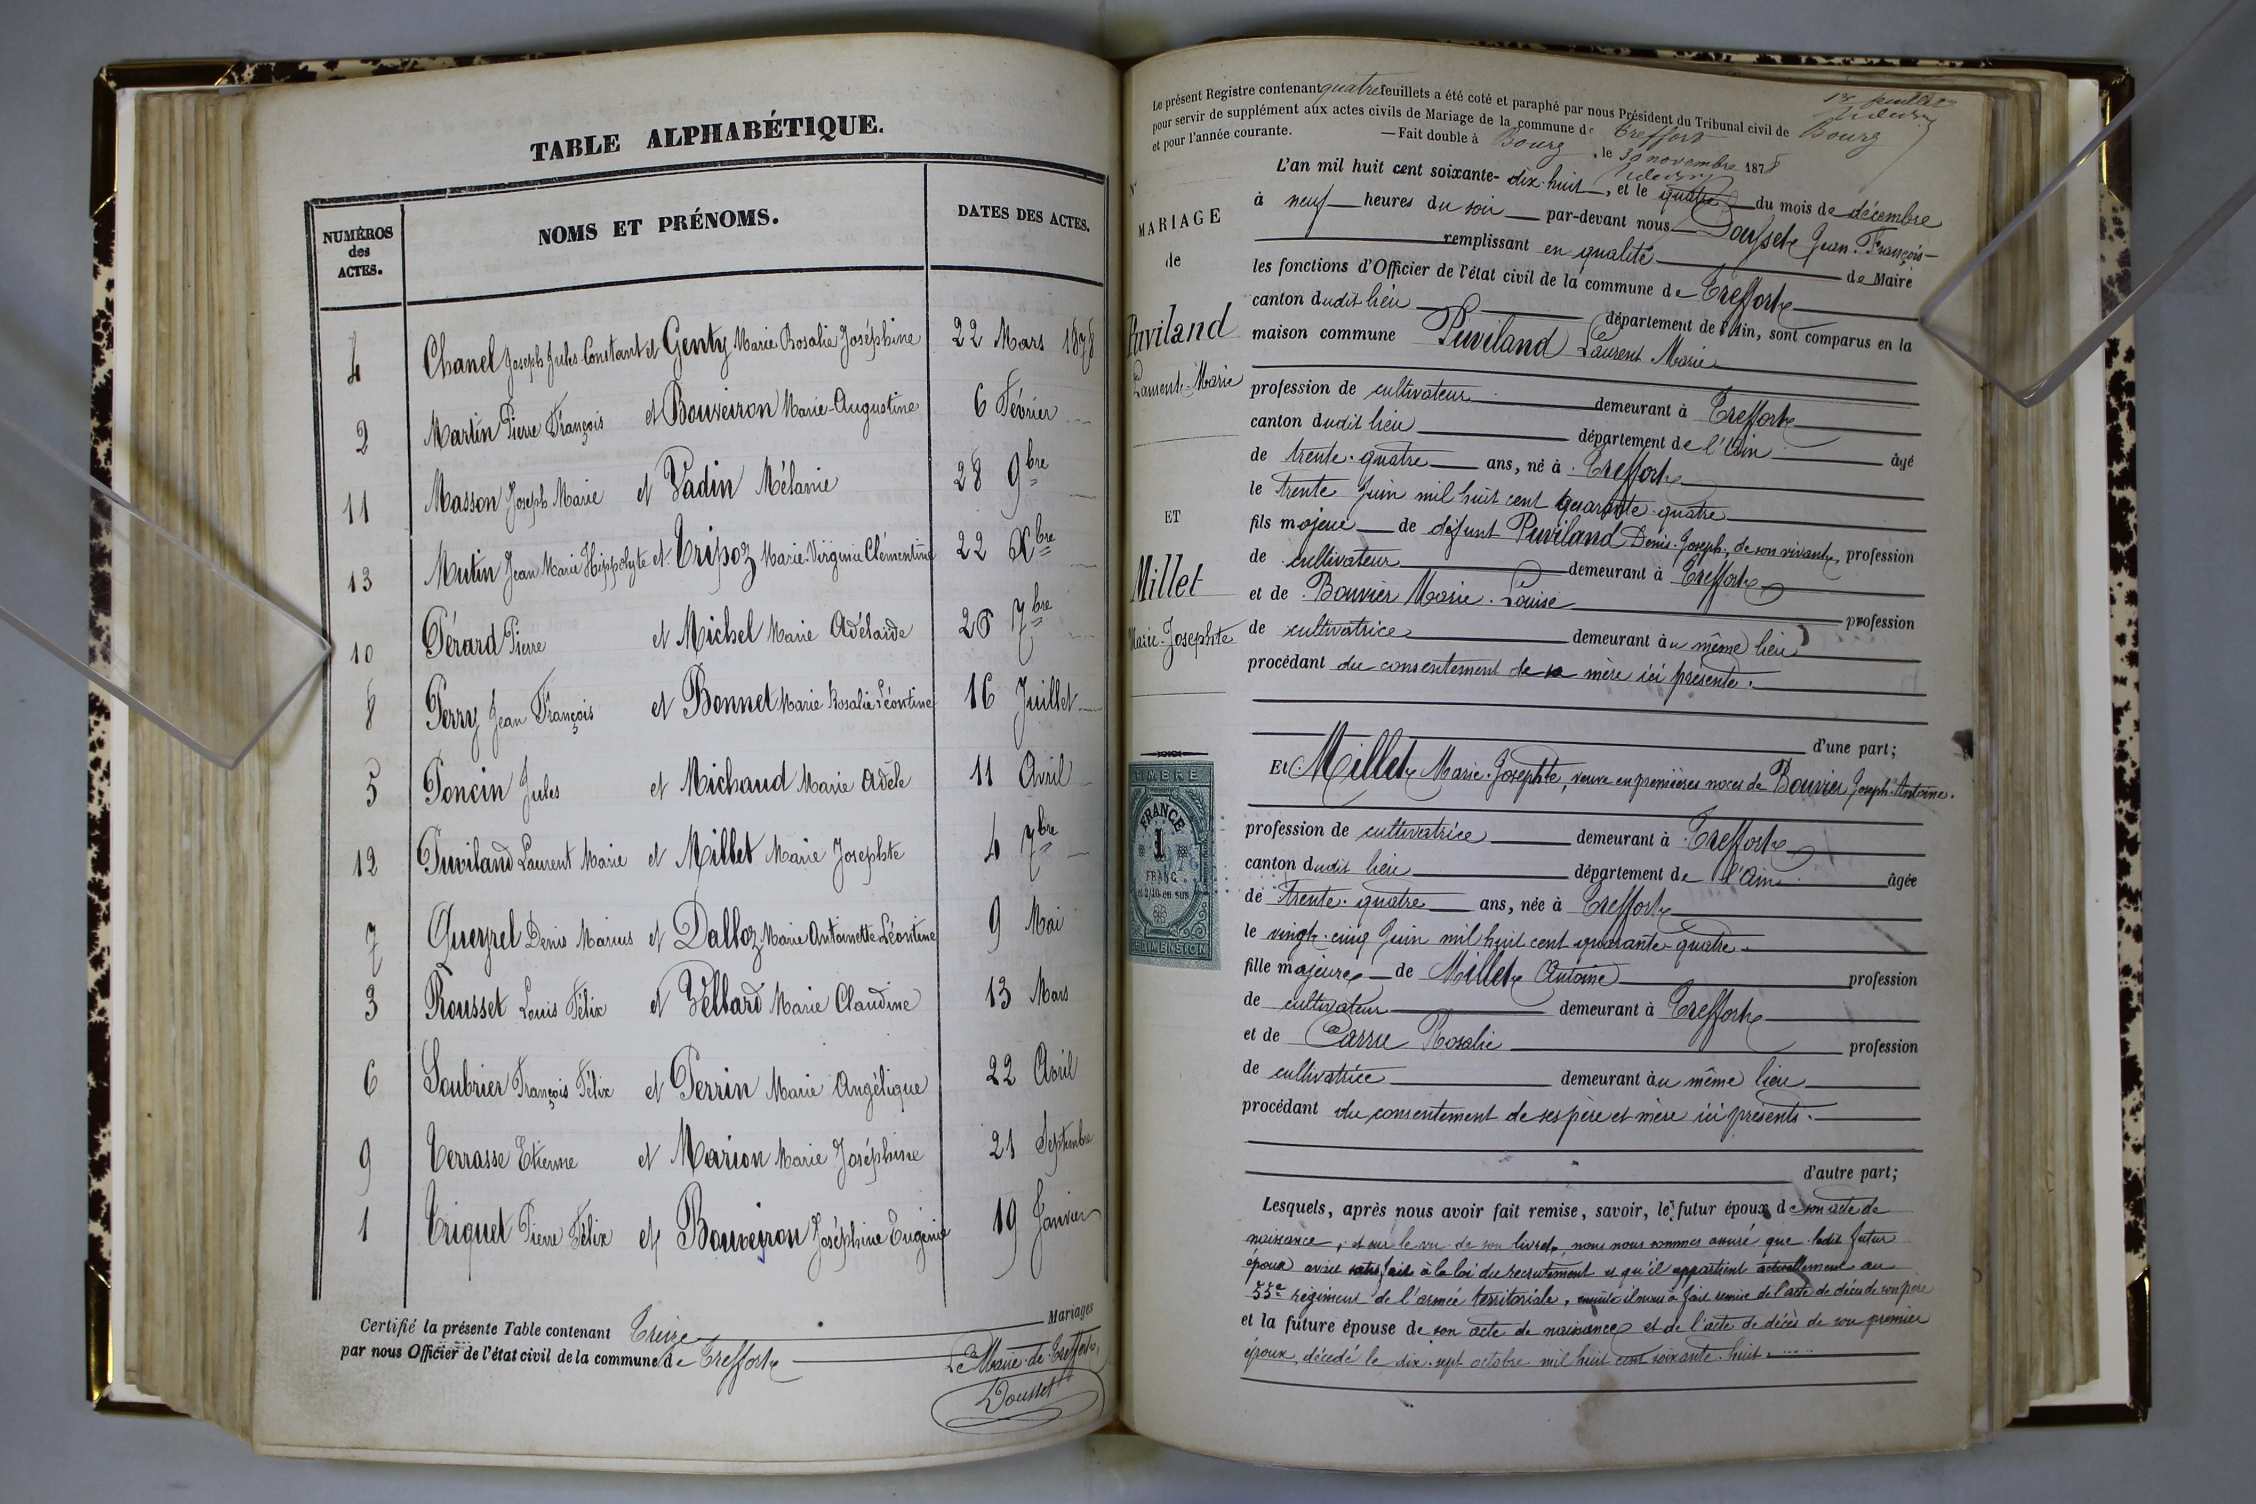 TABLE ALPHABÉTIQUE.
NUMÉROS des ACTES. NOMS ET PRÉNOMS. DATES DES ACTES.
4 Chanel Joseph Jules Constant et Genty Marie Rosalie Joséphine 22 Mars 1878
2 Martin Pierre François et Bouveiron Marie-Augustine 6 Février
11 Masson Joseph Marie et Vadin Mélanie 28 9bre
13 Mutin Jean Marie Hippolyte et Tripoz Marie-Virginie Clémentine 22 Xbre
10 Pérard Pierre et Michel Marie Adélaide 26 7bre
8 Perry Jean François et Bonnet Marie Rosalie Léontine 16 Juillet
5 Poncin Jules et Michaud Marie Adèle 11 Avril
12 Puviland Laurent Marie et Millet Marie Josephte 4 7bre
7 Queyrel Denis Marius et Dalloz Marie Antoinette Léontine 9 Mai
3 Rousset Louis Félix et Vellard Marie Claudine 13 Mars
6 Soubrier François Félix et Perrin Marie Angélique 22 Avril
9 Terrasse Etienne et Marion Marie Joséphine 21 Septembre
1 Triquet Pierre Félix et Bouveiron Joséphine Eugénie 19 Janvier
Certifié la présente Table contenant Treize Mariages
par nous Officier de l'état civil de la commune de Treffort
Le Maire de Treffort
Dousset
Le présent Registre contenant quatre feuillets a été coté et paraphé par nous Président du Tribunal civil de Bourg
pour servir de supplément aux actes civils de Mariage de la commune de Treffort
et pour l'année courante. — Fait double à Bourg, le 30 novembre 1878
MARIAGE
de
Puviland
Laurent-Marie
ET
Millet
Marie-Josephte
TIMBRE
FRANCE
1
FRANC
et 2/10 en sus
DIMENSION
L'an mil huit cent soixante-dix-huit, et le quatre du mois de décembre
à neuf heures du soir par-devant nous Dousset Jean-François
remplissant en qualité de Maire
les fonctions d'Officier de l'état civil de la commune de Treffort
canton dudit lieu département de l'Ain, sont comparus en la
maison commune Puviland Laurent Marie
profession de cultivateur demeurant à Treffort
canton dudit lieu département de l'Ain âgé
de trente-quatre ans, né à Treffort
le trente Juin mil huit cent quarante-quatre
fils majeur de défunt Puviland Denis-Joseph, de son vivant, profession
de cultivateur demeurant à Treffort
et de Bouvier Marie-Louise profession
de cultivatrice demeurant au même lieu
procédant du consentement de sa mère ici présente.
d'une part;
Et Millet Marie-Josephte, veuve en premières noces de Bouvier Joseph-Antoine.
profession de cultivatrice demeurant à Treffort
canton dudit lieu département de l'Ain âgée
de trente-quatre ans, née à Treffort
le vingt-cinq Juin mil huit cent quarante-quatre
fille majeure de Millet Antoine profession
de cultivateur demeurant à Treffort
et de Carru Rosalie profession
de cultivatrice demeurant au même lieu
procédant du consentement de ses père et mère ici présents.
d'autre part;
Lesquels, après nous avoir fait remise, savoir, le futur époux de son acte de
naissance, et sur le vu de son livret, nous nous sommes assuré que ledit futur
époux avait satisfait à la loi du recrutement et qu'il appartient actuellement au
55e régiment de l'armée territoriale, ensuite il nous a fait remise de l'acte de décès de son père
et la future épouse de son acte de naissance et de l'acte de décès de son premier
époux, décédé le dix-sept octobre mil huit cent soixante-huit.